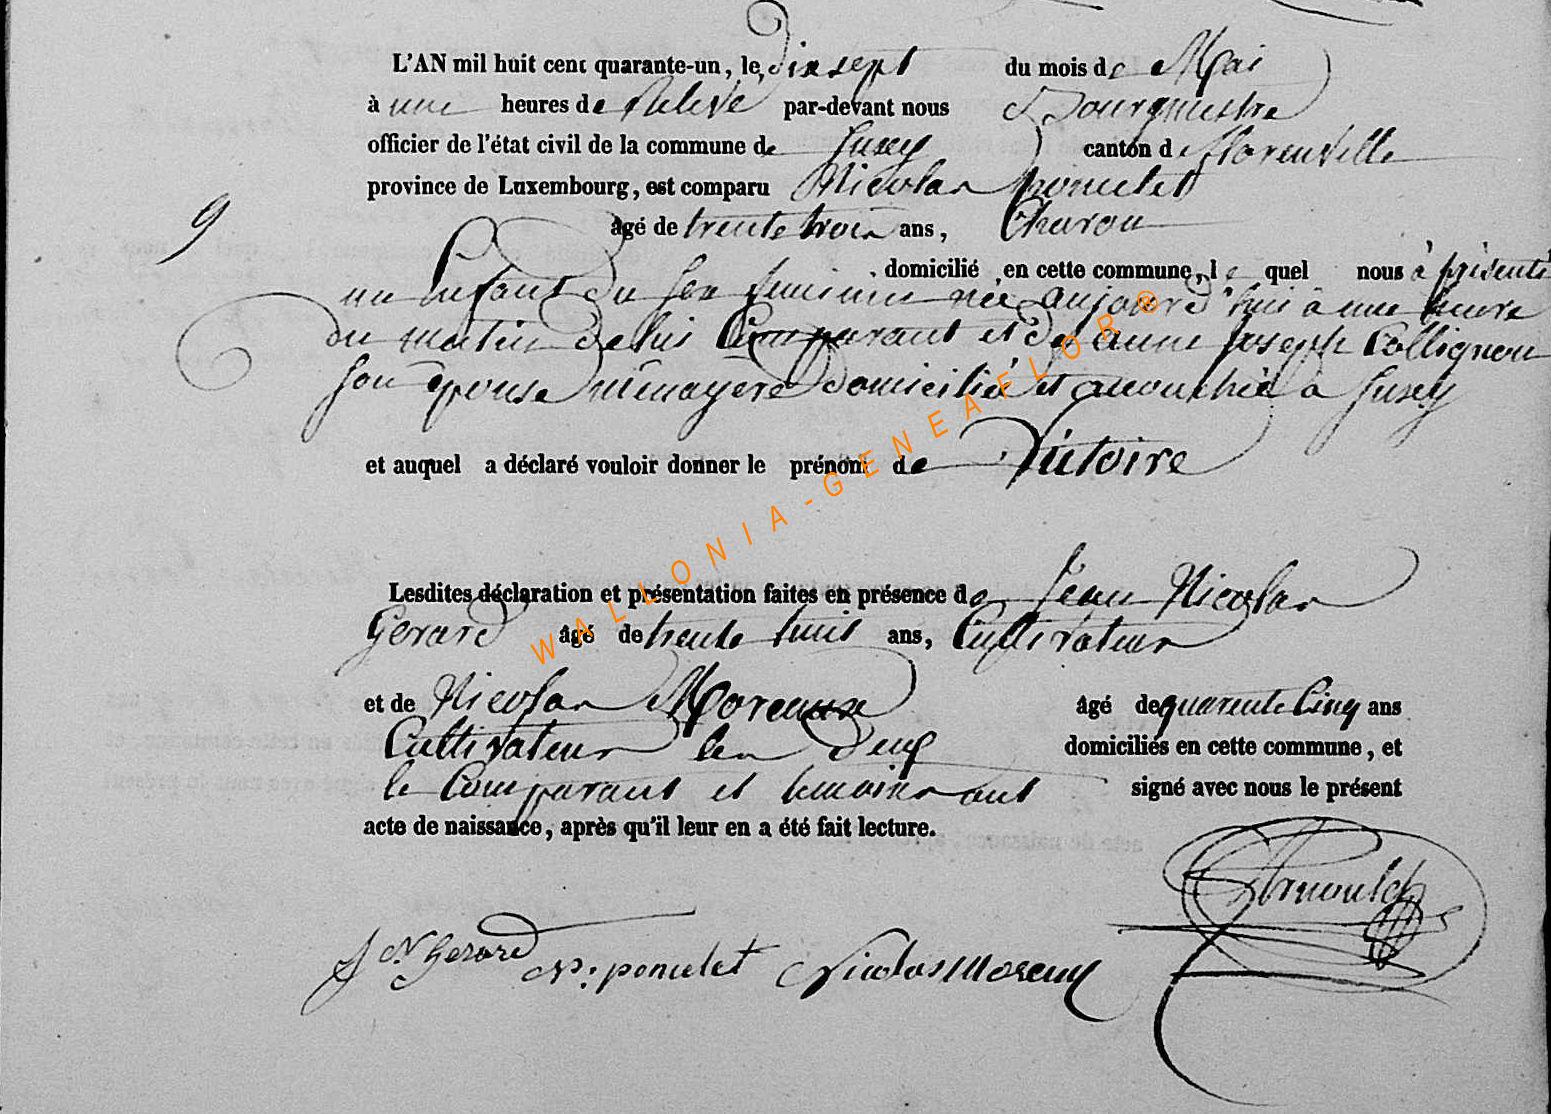 L'AN mil huit cent quarante-un, le dix sept du mois de Mai
à une heures de relevé par-devant nous Bourgmestre
officier de l'état civil de la commune de Suxy canton de florenville
province de Luxembourg, est comparu Nicolas poncelet
9 âgé de trente trois ans, Charon
domicilié en cette commune, le quel nous à présenté
un Enfant du sex feminin née aujourd'hui à une heure
du matin de lui Comparant et de anne Joseph Collignon
son épouse ménagere domicilié et accouchée a Suxy
et auquel a déclaré vouloir donner le prénom de Victoire
Lesdites déclaration et présentation faites en présence de Jean Nicolas
Gerard âgé de trente huit ans, Cultivateur
et de Nicolas Moreaux âgé de quarente Cinq ans
Cultivateur les deux domiciliés en cette commune, et
le Comparant et temoins ont signé avec nous le présent
acte de naissance, après qu'il leur en a été fait lecture.
J N Gerard N: poncelet Nicolas Moreux
WALLONIA-GENEAFLOR®